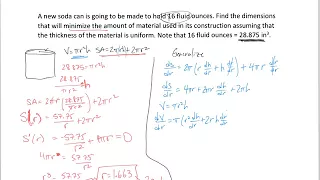 A new soda can is going to be made to hold 16 fluid ounces. Find the dimensions
that will minimize the amount of material used in its construction assuming that
the thickness of the material is uniform. Note that 16 fluid ounces = 28.875 in³.
V=πr²h SA=2πrh+2πr²
28.875=πr²h
28.875/πr² = h
SA=2πr(28.875/πr²)+2πr²
S(r)=57.75/r+2πr²
S'(r)=-57.75/r²+4πr=0
4πr=57.75/r²
r³=57.75
r=1.663
Generalize
dS/dr=2π(r dh/dr+h dr/dr)+4πr dr/dr
V=πr²h